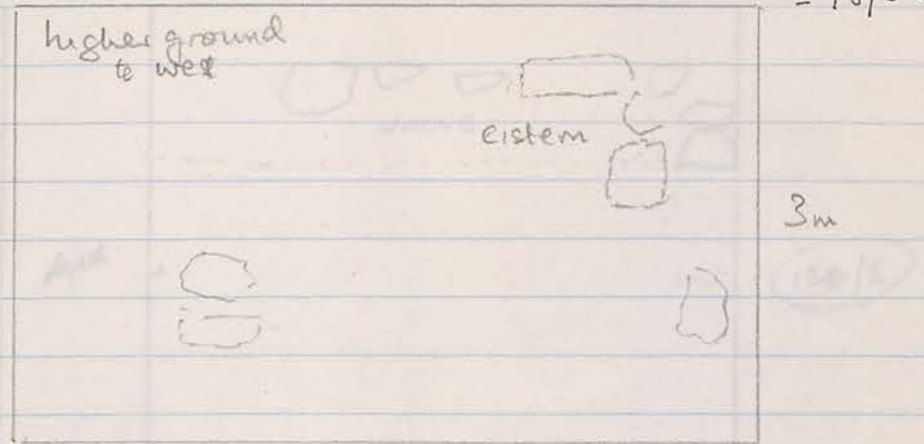 higher ground
to west
cistern
3m